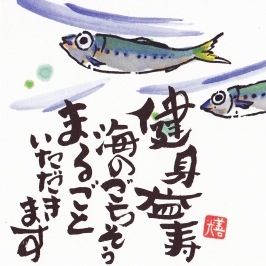 健身益寿
海のごちそう
まるごと
いただき
ます